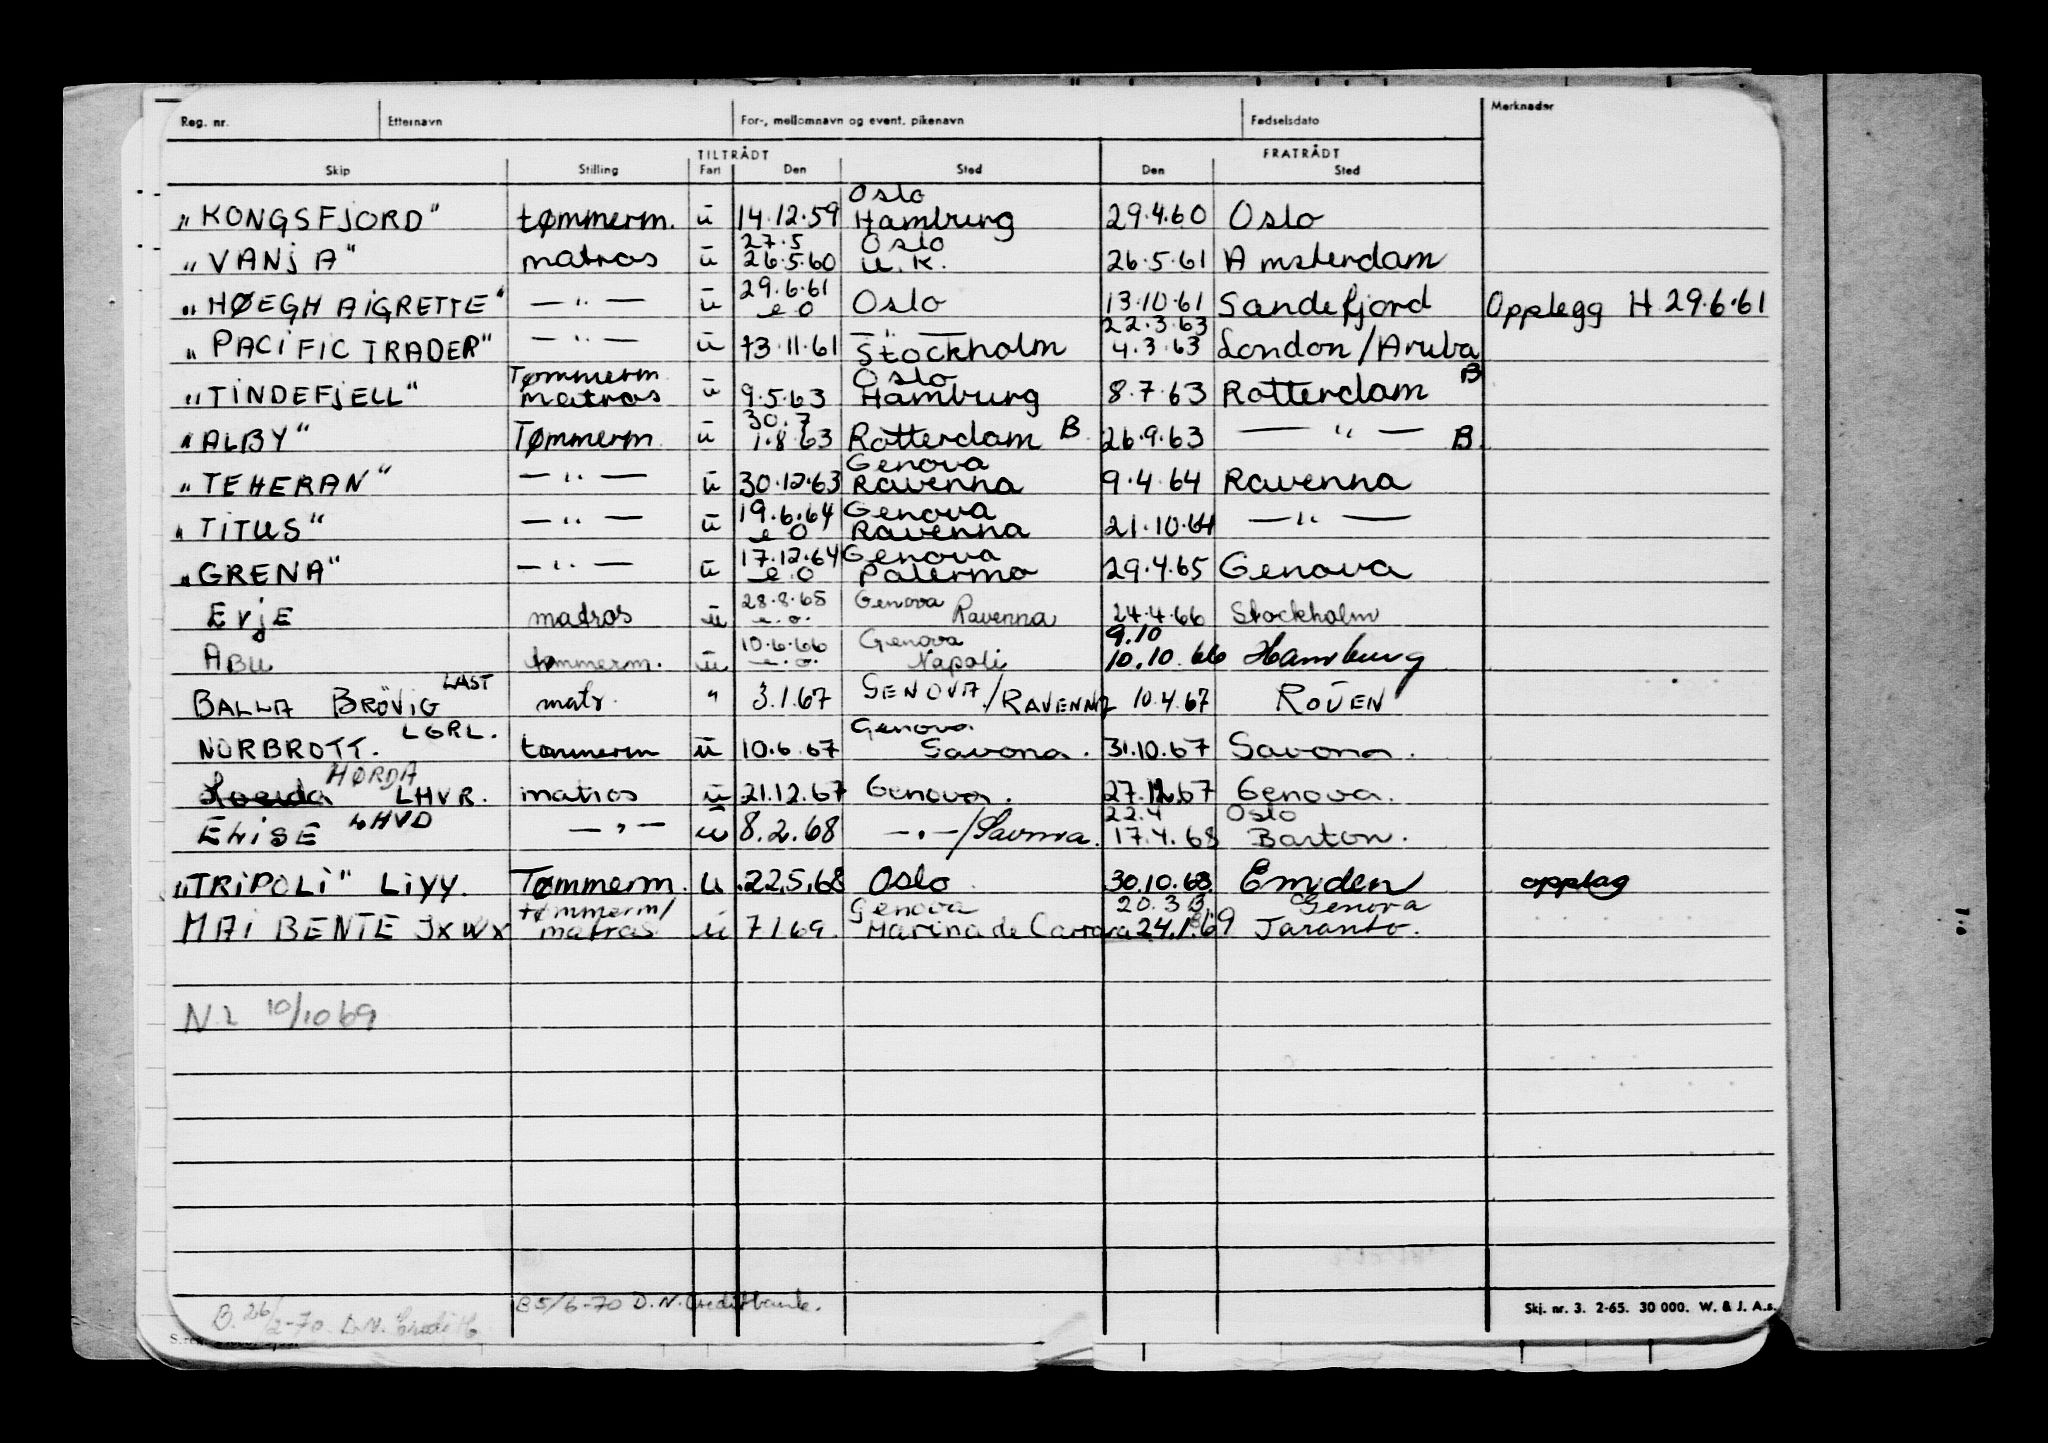 Reg. nr. Etternavn For-, mellomnavn og event. pikenavn Fødselsdato Merknader
TILTRÅDT FRATRÅDT
Skip Stilling Fart Den Sted Den Sted
Oslo
„KONGSFJORD" tømmerm. ū 14.12.59 Hamburg 29.4.60 Oslo
27.5 Oslo
„VANJA" matros ū 26.5.60 U.K. 26.5.61 Amsterdam
29.6.61
„HØEGH AIGRETTE" — " — ū e O Oslo 13.10.61 Sandefjord Opplegg H 29.6.61
22.3.63
„PACIFIC TRADER" — " — ū 13.11.61 Stockholm 4.3.63 London/Aruba
Tømmerm. Oslo B
„TINDEFJELL" matros ū 9.5.63 Hamburg 8.7.63 Rotterdam
30.7
„ALBY" Tømmerm. ū 1.8.63 Rotterdam B 26.9.63 — " — B.
Genova
„TEHERAN" — " — ū 30.12.63 Ravenna 9.4.64 Ravenna
19.6.64 Genova
„TITUS" — " — ū e O Ravenna 21.10.64 — " —
17.12.64 Genova
„GRENA" — " — ū e.O Palermo 29.4.65 Genova
28.8.65 Genova
Evje matros ū e.o. Ravenna 24.4.66 Stockholm
10.6.66 Genova 9.10
ABU tømmerm. ū e.o. Napoli 10.10.66 Hamburg
LAST
BALLA BRÖVIG matr. " 3.1.67 GENOVA/RAVENNA 10.4.67 ROUEN
LGRL. Genova
NORBROTT. tømmerm ū 10.6.67 Savona. 31.10.67 Savona.
HØRDA
LHVR. matros ū 21.12.67 Genova. 27.12.67 Genova.
LHVD 22.4 Oslo
ELISE — " — ū 8.2.68 — " —/Savona. 17.4.68 Barton.
„TRIPOLI" LIYY. Tømmerm. u 22.5.68 Oslo 30.10.68. Emden opplag
tømmerm/ Genova 20.3 B Genova
MAI BENTE JXWX matros ū 7.1.69 Marina de Carrara 24.1.69 Taranto.
N.L 10/10 69
B 5/6-70 D.N. Creditbank.
B. 26/2-70 D.N. Credit
Skj. nr. 3. 2-65. 30 000. W. & J. A.s.